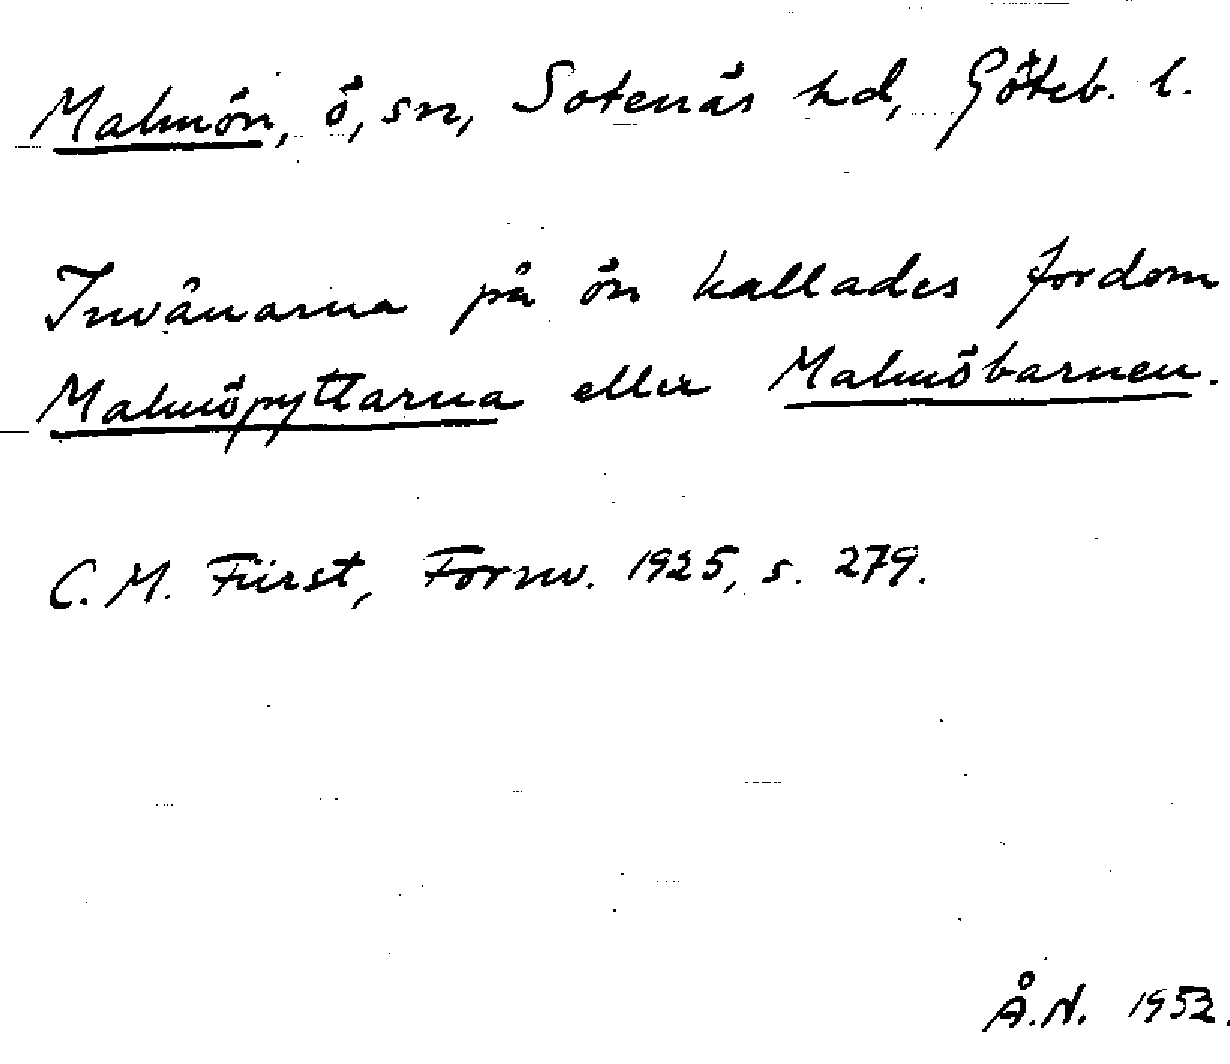 Malmön, ö, sn, Sotenäs hd, Göteb. l.
Invånarna på ön kallades fordom
Malmöpyttarna eller Malmöbarnen.
C. M. Fürst, Fornv. 1925, s. 279.
Å.N. 1952.